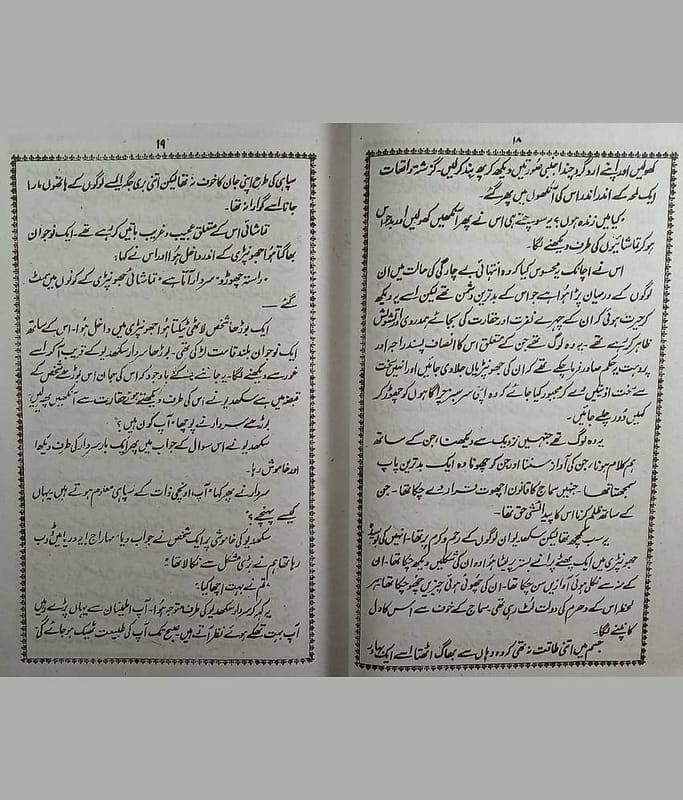 ۱۸
کھولیں اور اپنے ارد گرد چند اجنبی صورتیں دیکھ کر پھر بند کرلیں۔ گزشتہ واقعات
ایک لمحہ کے اندر اندر اس کی آنکھوں میں پھر گئے
کیا میں زندہ ہوں؟ یہ سوچتے ہی اس نے پھر آنکھیں کھولیں اور بدحواس
ہو کر تماشائیوں کی طرف دیکھنے لگا۔
اس نے اچانک یہ محسوس کیا کہ وہ انتہائی بے چارگی کی حالت میں ان
لوگوں کے درمیان پڑا ہوا ہے جو اس کے بدترین دشمن تھے لیکن اسے یہ دیکھ
کر حیرت ہوئی کہ ان کے چہرے نفرت اور حقارت کی بجائے ہمدردی اور تشویش
ظاہر کر رہے تھے۔ یہ وہ لوگ تھے جن کے متعلق اس کا انصاف پسند راجہ اور
پروہت یہ حکم صادر فرما چکے تھے کہ ان کی جھونپڑیاں جلا دی جائیں اور انہیں سخت
سے سخت اذیتیں دے کر مجبور کیا جائے کہ وہ اپنی سرسبز چراگاہوں کو چھوڑ کر
کہیں دور چلے جائیں۔
یہ وہ لوگ تھے جنہیں نزدیک سے دیکھنا، جن کے ساتھ
ہم کلام ہونا، جن کی آواز سننا اور جن کو چھونا وہ ایک بدترین پاپ
سمجھتا تھا۔ جنہیں سماج کا قانون اچھوت قرار دے چکا تھا۔ جن
کے ساتھ ظلم کرنا اس کا پیدائشی حق تھا۔
یہ سب کچھ تھا لیکن سکھدیو ان لوگوں کے رحم و کرم پر تھا۔ انہیں کی بوسیدہ
جھونپڑی میں ایک پھٹے پرانے بستر پر لیٹا ہوا وہ ان کی شکلیں دیکھ چکا تھا۔ ان
کے منہ سے نکلی ہوئی آوازیں سن چکا تھا۔ ان کی چھوئی ہوئی چیزیں چھو چکا تھا۔ ہر
لحظہ اس کے دھرم کی دولت لٹ رہی تھی۔ سماج کے خوف سے اس کا دل
کانپنے لگا۔
جسم میں اتنی طاقت نہ تھی کہ وہ وہاں سے بھاگ اٹھتا اسے ایک بہادر
۱۹
سپاہی کی طرح اپنی جان کا خوف نہ تھا لیکن اتنی بری جگہ ایسے لوگوں کے ہاتھوں مارا
جانا اسے گوارا نہ تھا۔
تماشائی اس کے متعلق عجیب و غریب باتیں کر رہے تھے۔ ایک نوجوان
بھاگتا ہوا جھونپڑی کے اندر داخل ہوا اور اس نے کہا:
۔ راستہ چھوڑو۔ سردار آتا ہے۔ تماشائی جھونپڑی کے کونوں میں سمٹ
گئے —
ایک بوڑھا شخص لاٹھی ٹیکتا ہوا جھونپڑی میں داخل ہوا۔ اس کے ساتھ
ایک نوجوان بلند قامت لڑکی تھی۔ بوڑھا سردار سکھدیو کے قریب آ کر اسے
غور سے دیکھنے لگا۔ یہ جانتے ہوئے باوجود کہ اس کی جان اس بوڑھے شخص کے
قبضہ میں ہے سکھدیو نے اس کی طرف دیکھتے ہوئے حقارت سے آنکھیں پھیر لیں
بوڑھے سردار نے پوچھا۔ آپ کون ہیں؟
سکھدیو نے اس سوال کے جواب میں پھر ایک بار سردار کی طرف دیکھا
اور خاموش رہا۔
سردار نے پھر کہا۔ آپ اونچی ذات کے سپاہی معلوم ہوتے ہیں۔ یہاں
کیسے پہنچے؟
سکھدیو کی خاموشی پر ایک شخص نے جواب دیا۔ مہاراج! یہ دریا میں ڈوب
رہا تھا ہم نے بڑی مشکل سے نکالا تھا۔
تم نے بہت اچھا کیا۔
یہ کہہ کر سردار سکھدیو کی طرف متوجہ ہوا۔ آپ اطمینان سے یہاں پڑے رہیں
آپ بہت تھکے ہوئے نظر آتے ہیں۔ صبح تک آپ کی طبیعت ٹھیک ہو جائے گی